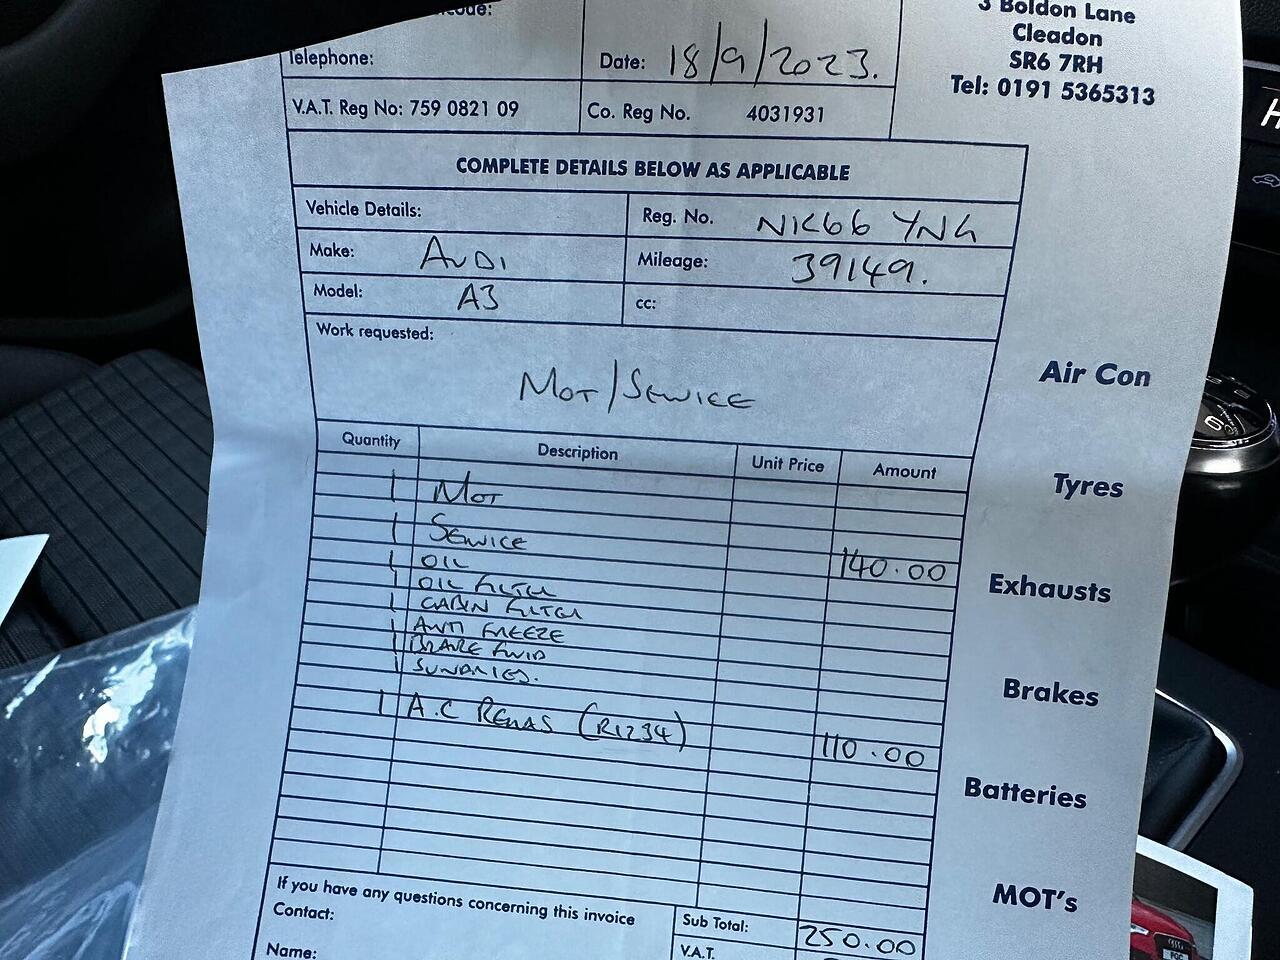 3 Boldon Lane
Cleadon
SR6 7RH
Tel: 0191 5365313
Telephone:
Date: 18/9/2023.
V.A.T. Reg No: 759 0821 09
Co. Reg No. 4031931
COMPLETE DETAILS BELOW AS APPLICABLE
Vehicle Details:
Reg. No. NK66 YNG
Make: AUDI
Mileage: 39149.
Model: A3
cc:
Work requested:
MOT/SERVICE
Quantity Description Unit Price Amount
1 MOT
1 SERVICE 140.00
1 OIL
1 OIL FILTER
1 CABIN FILTER
1 ANTI FREEZE
1 BRAKE FLUID
1 SUNDRIES.
1 A.C REGAS (R1234) 110.00
If you have any questions concerning this invoice
Contact:
Name:
Sub Total: 250.00
V.A.T.
Air Con
Tyres
Exhausts
Brakes
Batteries
MOT's